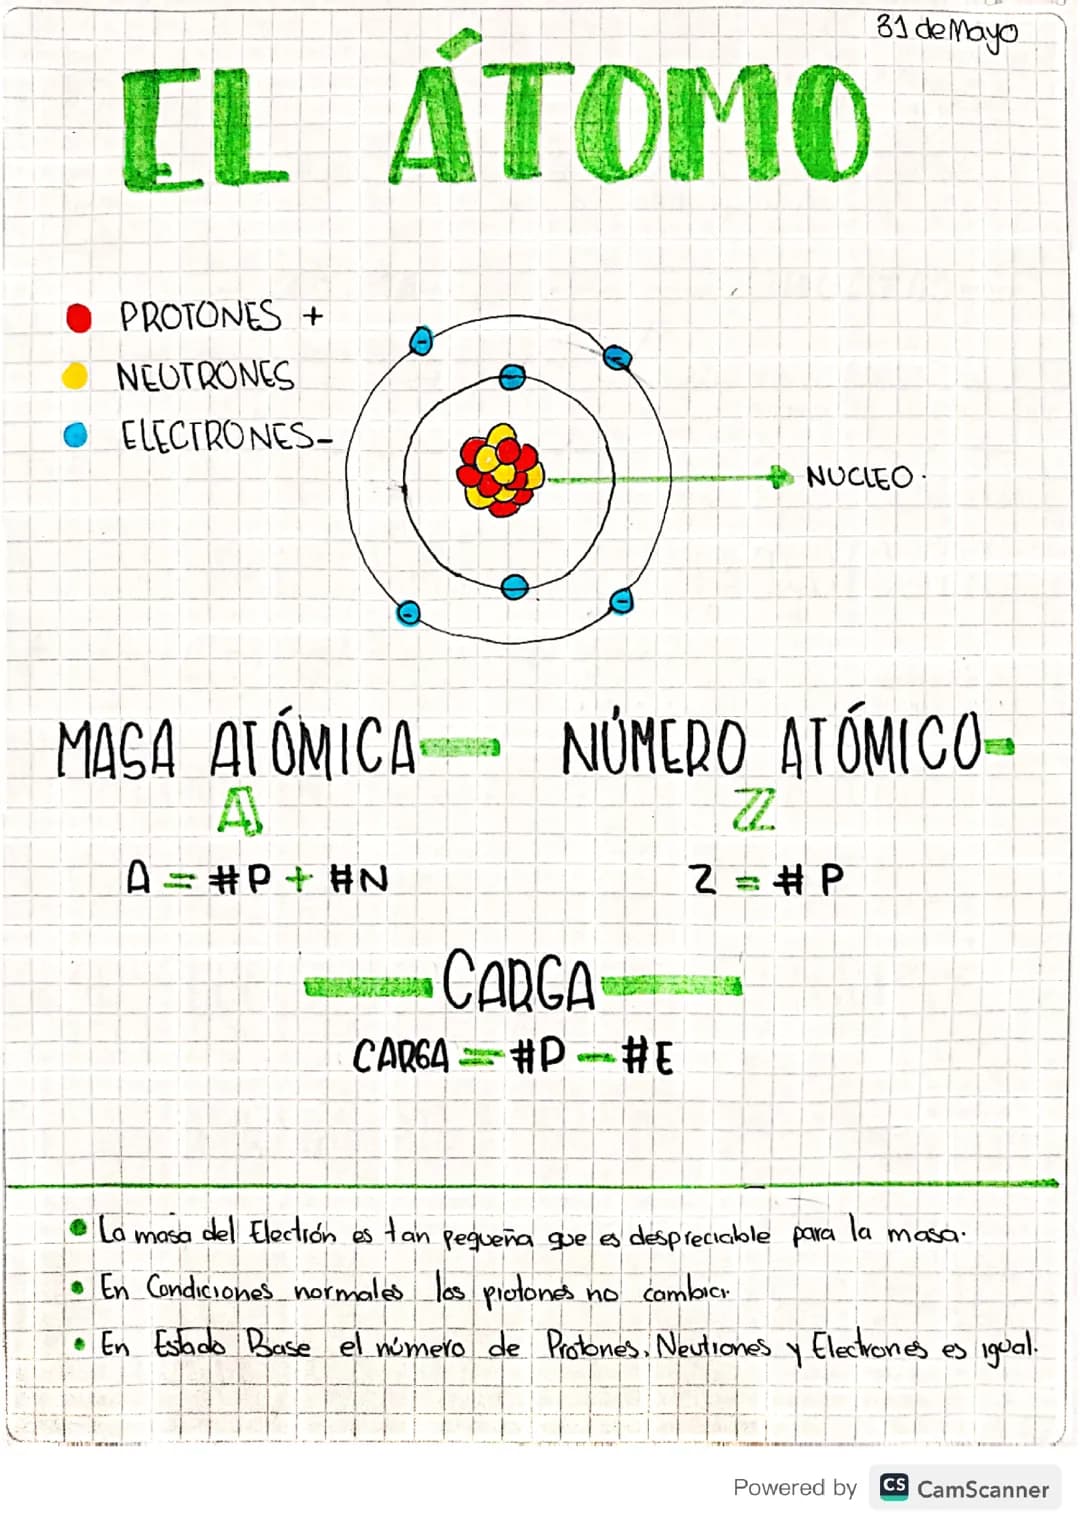 31 de Mayo
EL ÁTOMO
PROTONES +
NEUTRONES
ELECTRONES-
NUCLEO.
MASA ATÓMICA
NÚMERO ATÓMICO
A
Z
A = #P + #N
Z = # P
CARGA
CARGA = #P - #E
La masa del Electrón es tan pequeña que es despreciable para la masa.
En Condiciones normales los protones no cambian
En Estado Base el número de Protones, Neutrones y Electrones es igual.
Powered by CS CamScanner